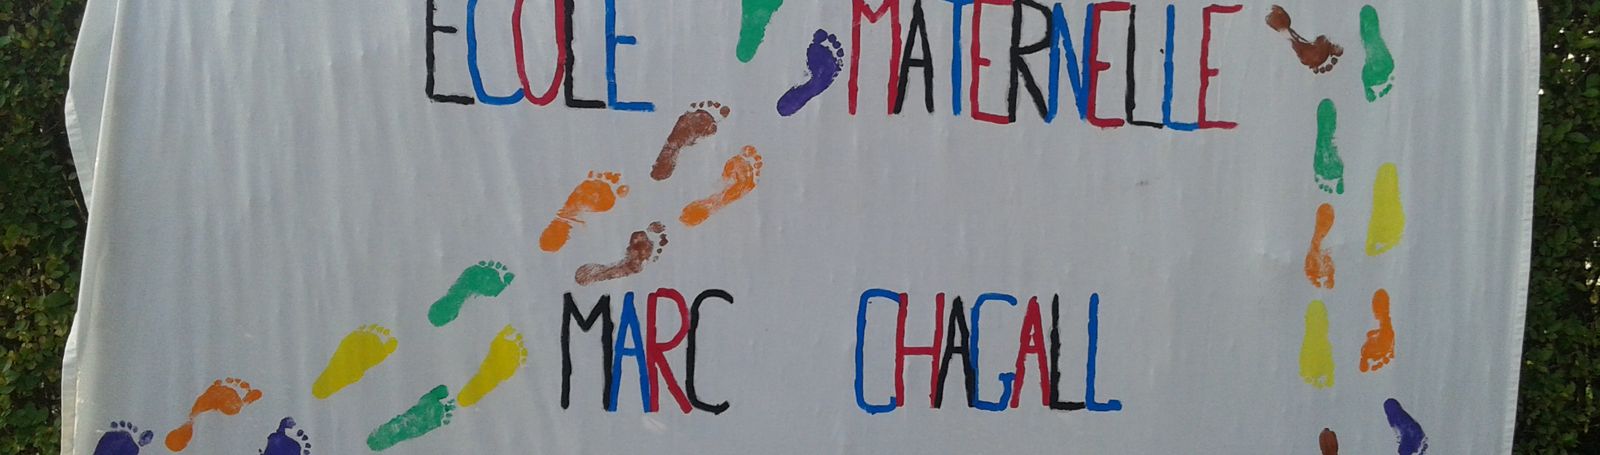 ECOLE MATERNELLE
MARC CHAGALL